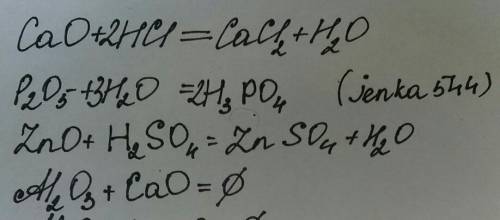 CaO+2HCl=CaCl₂+H₂O
P₂O₅+3H₂O =2H₃PO₄ (jenka544)
ZnO+H₂SO₄=ZnSO₄+H₂O
Al₂O₃+CaO=∅